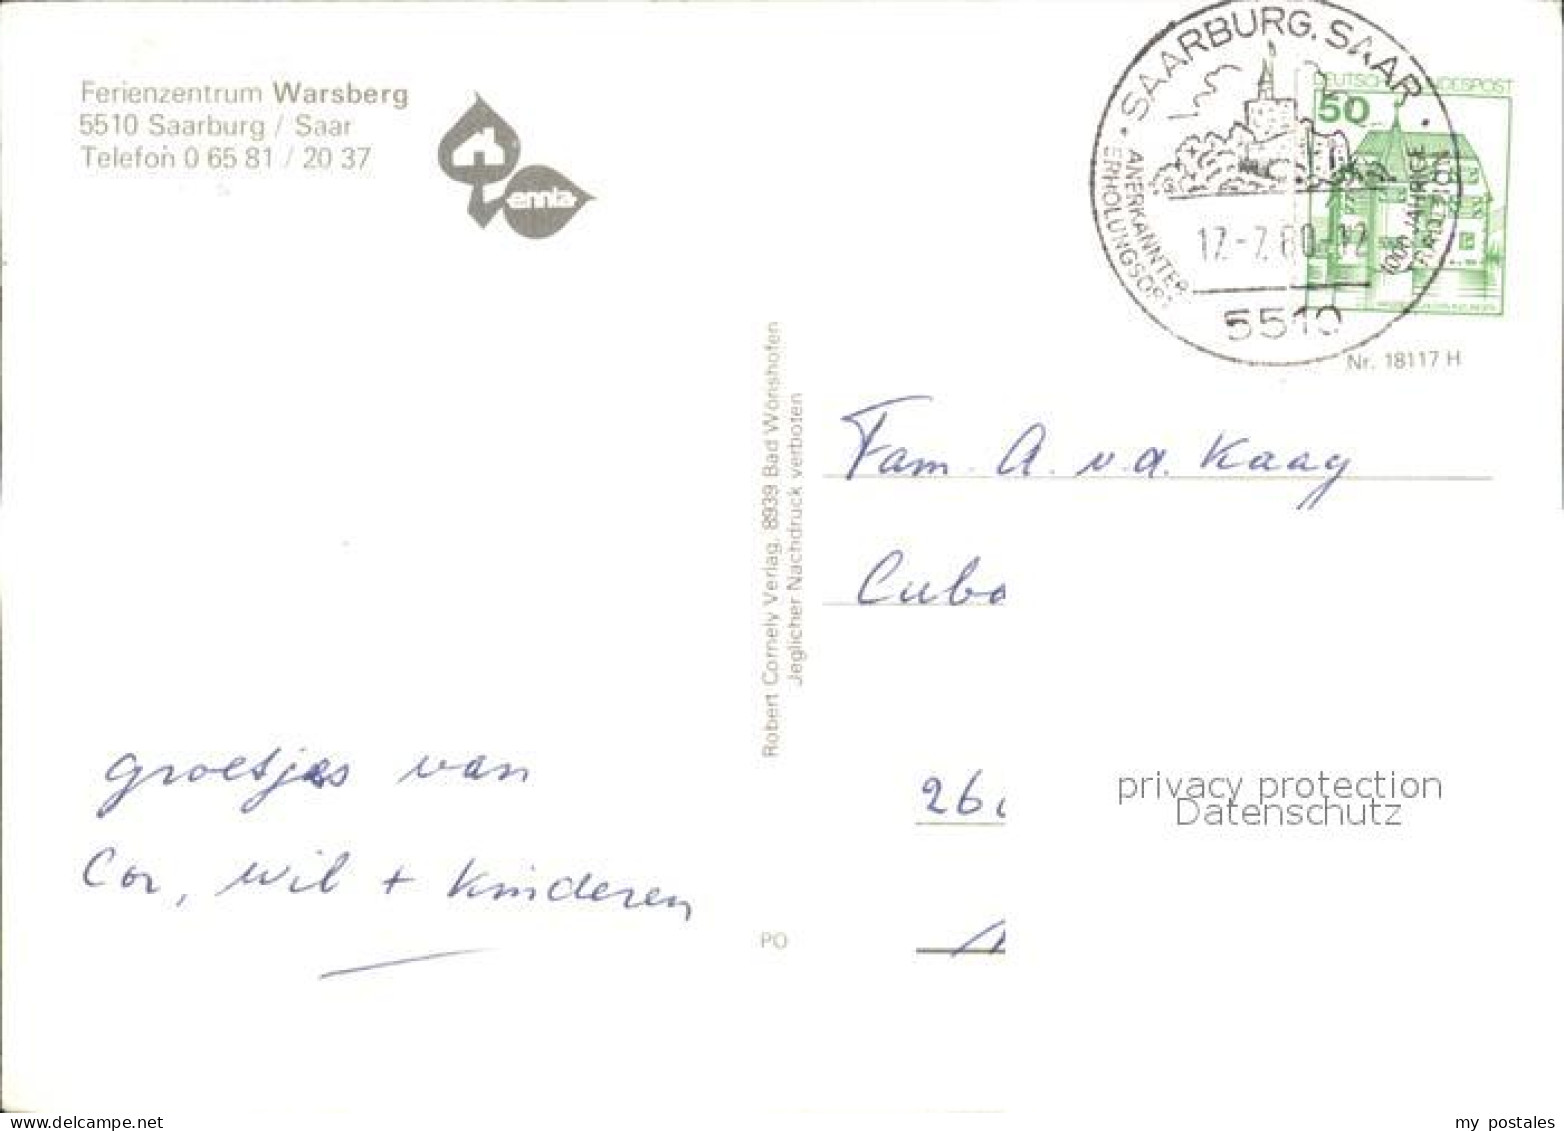 Ferienzentrum Warsberg
5510 Saarburg / Saar
Telefon 0 65 81 / 20 37
ennia
SAARBURG, SAAR
ANERKANNTER
ERHOLUNGSORT
1000 JÄHRIGE
TRADITION
5510
DEUTSCHE BUNDESPOST
50
Nr. 18117 H
Robert Cornely Verlag, 8939 Bad Wörishofen
Jeglicher Nachdruck verboten
Fam. A. v.d. Kaay
Cuba
26
privacy protection
Datenschutz
groetjes van
Cor, Wil + Kinderen
PO
www.delcampe.net
my_postales